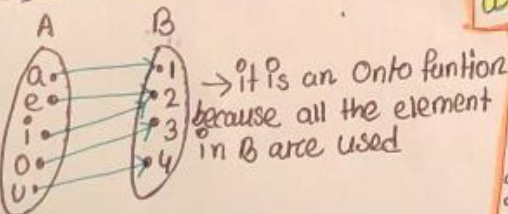 A B
a 1
e 2
i 3
o 4
u
→ it is an Onto funtion
because all the element
in B arce used